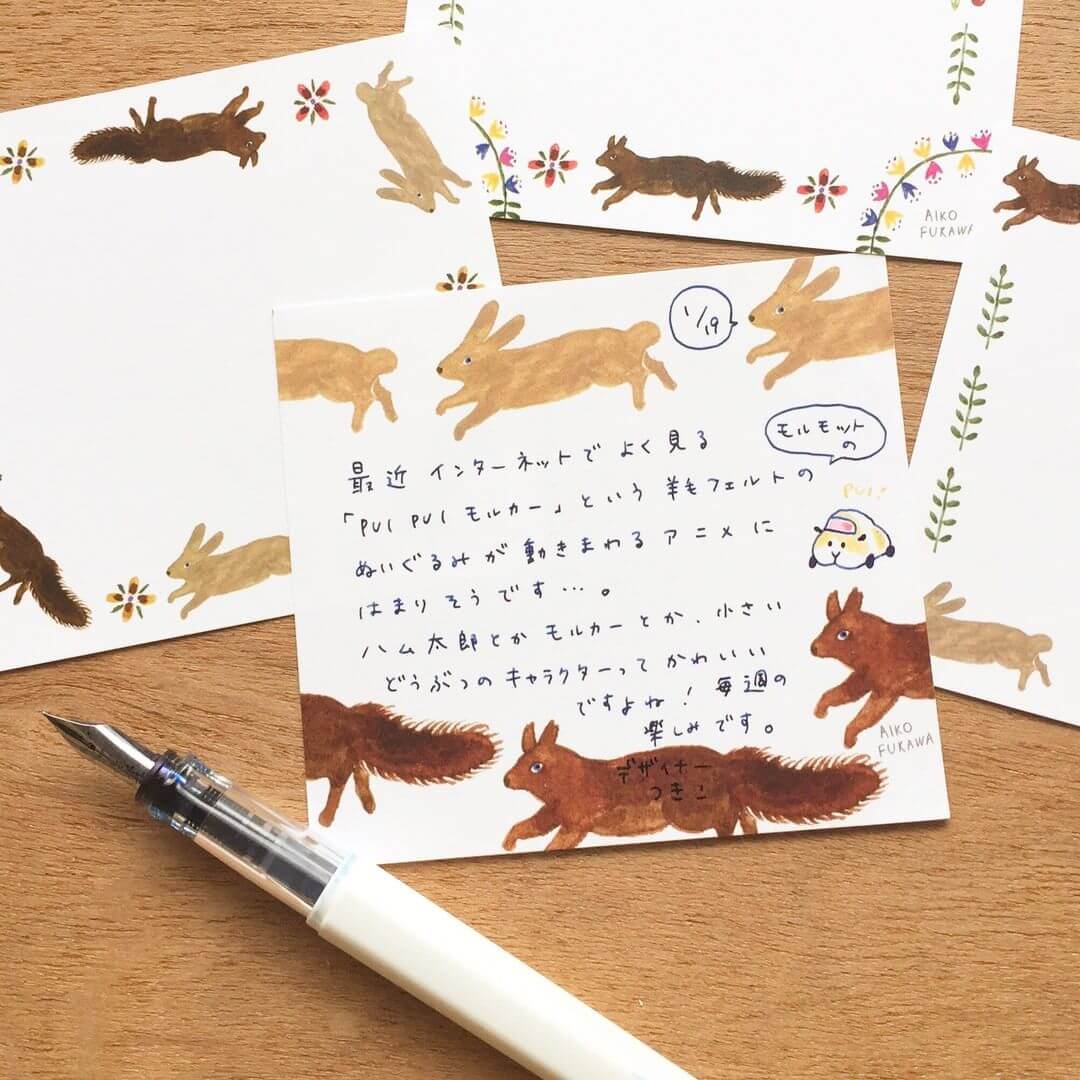 AIKO
FUKAWA
1/19
モルモット
の
最近 インターネットで よく見る
「PUI PUI モルカー」という 羊毛フェルトの
PUI!
ぬいぐるみが 動きまわる アニメに
はまりそうです…。
ハム太郎とか モルカーとか、小さい
どうぶつのキャラクターって かわいい
ですよね! 毎週の
楽しみです。
AIKO
FUKAWA
デザイナー
つきこ